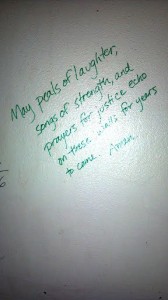 May peals of laughter,
songs of strength, and
prayers for justice echo
on these walls for years
to come. Amen.